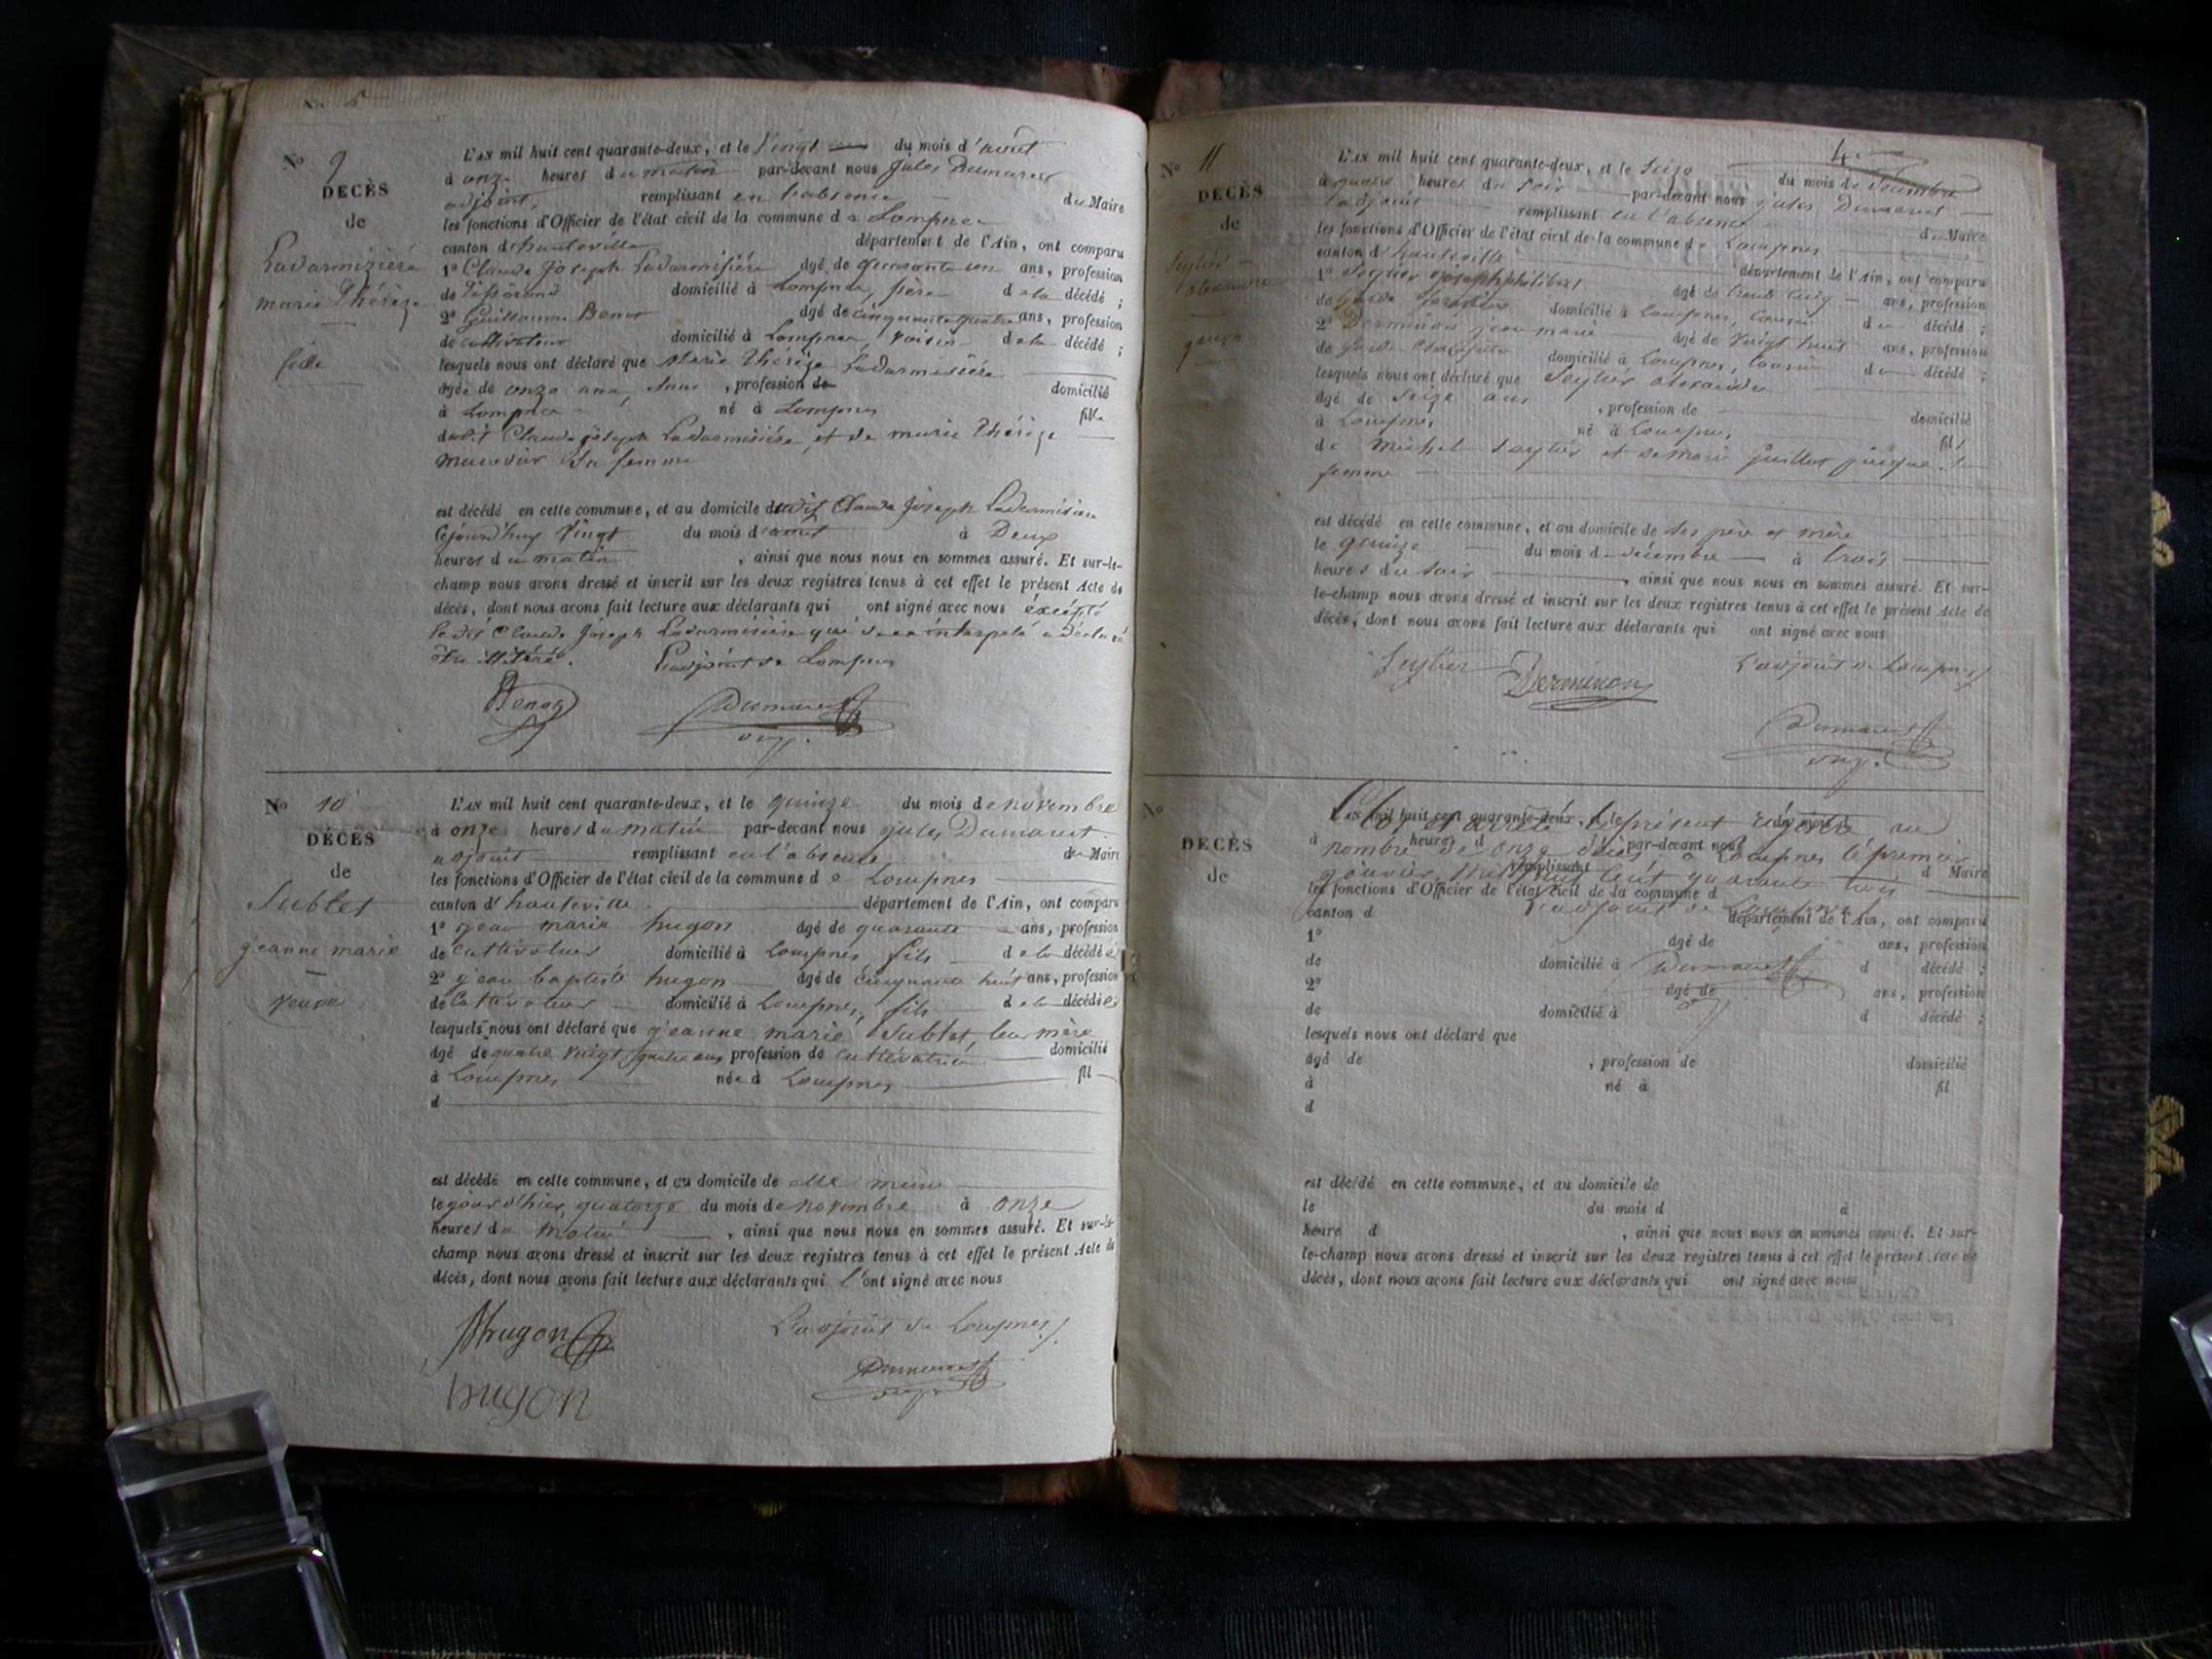 No 9
DECÈS
de
Ladarmizière
marie Thérèze
fille
L'an mil huit cent quarante-deux, et le Vingt du mois d'aout
à onze heures du matin par-devant nous Jules Dumarest
adjoint, remplissant en l'absence du Maire
les fonctions d'Officier de l'état civil de la commune de Lompnes
canton d'hauteville département de l'Ain, ont comparu
1º Claude Joseph Ladarmisière âgé de quarante un ans, profession
de Tisserand domicilié à Lompnes, père de la décédé ;
2º Guillaume Benoz âgé de cinquante quatre ans, profession
de cultivateur domicilié à Lompnes, voisin de la décédé ;
lesquels nous ont déclaré que Marie Thérèze Ladarmisière
agée de onze ans, sans , profession de domicilié
à Lompnes né à Lompnes fille
dudit Claude joseph Ladarmisière, et de marie Thérèze
sa femme
est décédé en cette commune, et au domicile dudit Claude Joseph Ladarmisière
cejourd'huy Vingt du mois d'aout à Deux
heures du matin , ainsi que nous nous en sommes assuré. Et sur-le-
champ nous avons dressé et inscrit sur les deux registres tenus à cet effet le présent Acte de
décès, dont nous avons fait lecture aux déclarants qui ont signé avec nous éxcépté
ledit Claude Joseph Ladarmisière qui de ce interpelé a déclaré
être illitéré. L'adjoint de Lompnes
Benoz Dumarest
No 10
DÉCÈS
de
Sublet
jeanne marie
veuve
L'an mil huit cent quarante-deux, et le quinze du mois de novembre
à onze heures du matin par-devant nous jules Dumarest
adjoint remplissant en l'absence du Maire
les fonctions d'Officier de l'état civil de la commune de Lompnes
canton d'hauteville département de l'Ain, ont comparu
1º jean marie hugon âgé de quarante ans, profession
de Cultivateur domicilié à Lompnes, fils de la décédée
2º jean baptiste hugon âgé de cinquante huit ans, profession
de Cultivateur domicilié à Lompnes, fils de la décédée
lesquels nous ont déclaré que jeanne marie Sublet, leur mère
âgé de quatre vingt quatre ans profession de cultivatrice domicilié
à Lompnes née à Lompnes fil
d
est décédé en cette commune, et au domicile de elle même
le jour d'hier quatorze du mois de novembre à onze
heures du matin , ainsi que nous nous en sommes assuré. Et sur-le-
champ nous avons dressé et inscrit sur les deux registres tenus à cet effet le présent Acte de
décès, dont nous avons fait lecture aux déclarants qui l'ont signé avec nous
hugon L'adjoint de Lompnes
hugon Dumarest
4
No 11
DECÈS
de
Seytier
alexandre
garçon
L'an mil huit cent quarante-deux, et le Seize du mois de Décembre
à quatre heures du soir par-devant nous jules Dumarest
l'adjoint remplissant en l'absence du Maire
les fonctions d'Officier de l'état civil de la commune de Lompnes
canton d'hauteville département de l'Ain, ont comparu
1º Seytier joseph philibert âgé de trente cinq ans, profession
de Garde forestier domicilié à Lompnes, Cousin du décédé ;
2º Derminon jean marie âgé de Vingt huit ans, profession
de Garde Champêtre domicilié à Lompnes, Cousin du décédé ;
lesquels nous ont déclaré que Seytier alexandre
âgé de Seize ans , profession de domicilié
à Lompnes né à Lompnes, fils
de Michel Seytier et de Marie juillet sa
femme
est décédé en cette commune, et au domicile de ses père et mère
le quinze du mois de décembre à trois
heures du soir , ainsi que nous nous en sommes assuré. Et sur-
le-champ nous avons dressé et inscrit sur les deux registres tenus à cet effet le présent Acte de
décès, dont nous avons fait lecture aux déclarants qui ont signé avec nous
Seytier Derminon L'adjoint de Lompnes
Dumarest
No
DECÈS
de
L'an mil huit cent quarante-deux, et le du mois d
à heures d par-devant nous
remplissant d Maire
les fonctions d'Officier de l'état civil de la commune d
canton d département de l'Ain, ont comparu
Clos et arrêté le présent régistre au
nombre de onze décès à Lompnes le premier
janvier Mil huit cent quarante trois
L'adjoint de Lompnes
Dumarest
1º âgé de ans, profession
de domicilié à d décédé ;
2º âgé de ans, profession
de domicilié à d décédé ;
lesquels nous ont déclaré que
âgé de , profession de domicilié
à né à fil
d
est décédé en cette commune, et au domicile de
le du mois d à
heure d , ainsi que nous nous en sommes assuré. Et sur-
le-champ nous avons dressé et inscrit sur les deux registres tenus à cet effet le présent Acte de
décès, dont nous avons fait lecture aux déclarants qui ont signé avec nous